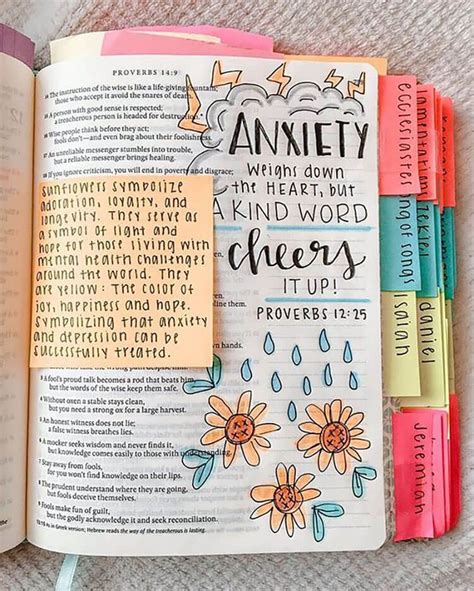 PROVERBS 14:9
16 The instruction of the wise is like a life-giving fountain;
those who accept it avoid the snares of death.
A person with good sense is respected;
a treacherous person is headed for destruction.
Wise people think before they act;
fools don't—and even brag about their foolishness.
An unreliable messenger stumbles into trouble,
but a reliable messenger brings healing.
If you ignore criticism, you will end in poverty and disgrace;
ANXIETY
WEIGHS DOWN
THE HEART, BUT
A KIND WORD
cheers
IT UP!
PROVERBS 12:25
SUNFLOWERS SYMBOLIZE
ADORATION, LOYALTY, AND
LONGEVITY. THEY SERVE AS
A SYMBOL OF LIGHT AND
HOPE FOR THOSE LIVING WITH
MENTAL HEALTH CHALLENGES
AROUND THE WORLD. THEY
ARE YELLOW: THE COLOR OF
JOY, HAPPINESS AND HOPE.
SYMBOLIZING THAT ANXIETY
AND DEPRESSION CAN BE
SUCCESSFULLY TREATED.
own hands.
A fool's proud talk becomes a rod that beats him,
but the words of the wise keep them safe.
Without oxen a stable stays clean,
but you need a strong ox for a large harvest.
An honest witness does not lie;
a false witness breathes lies.
A mocker seeks wisdom and never finds it,
but knowledge comes easily to those with understanding.
Stay away from fools,
for you won't find knowledge on their lips.
The prudent understand where they are going,
but fools deceive themselves.
Fools make fun of guilt,
but the godly acknowledge it and seek reconciliation.
As in Greek version; Hebrew reads the way of the treacherous is lasting.
ecclesiastes
lamentations
song of songs
ezekiel
isaiah
daniel
Jeremiah